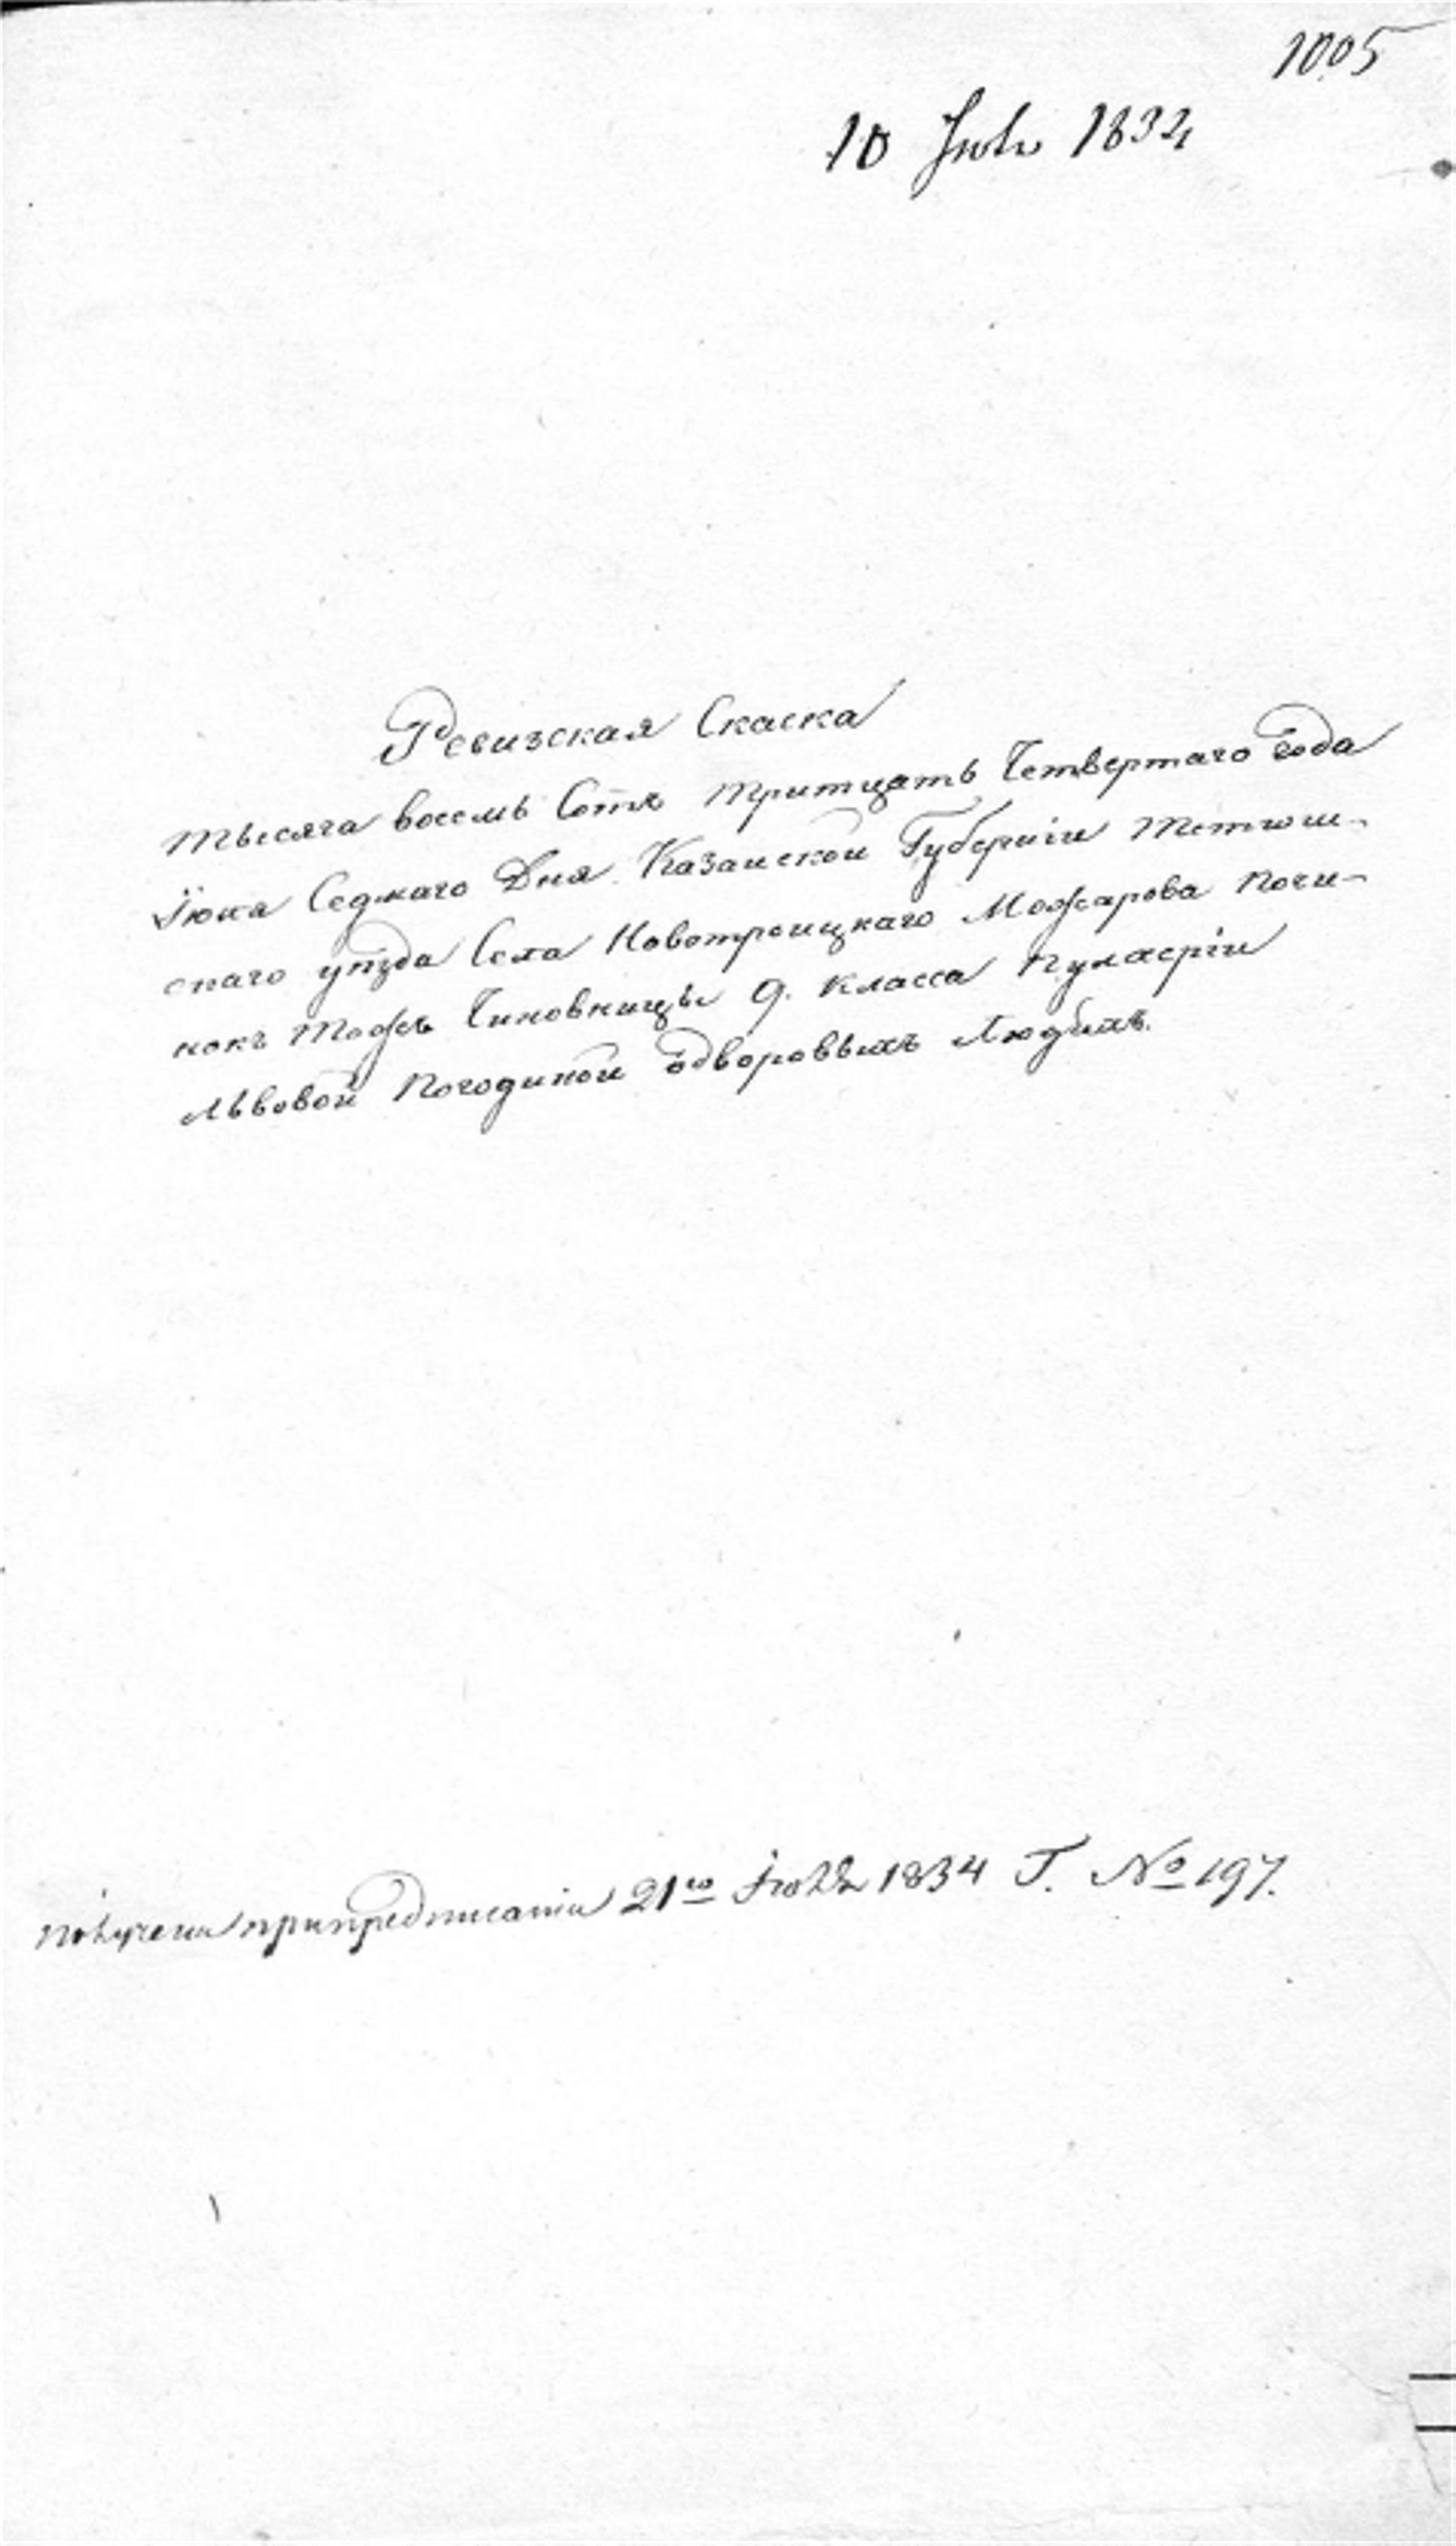 1005
10 Июль 1834
Ревизская Скаска
тысяча восемь Сотъ тритцать Четвертаго Года
Їюня Седмаго Дня Казанской Губерніи Тетюш-
скаго уѣзда Села Новотроицкаго Можарова Почи-
нокъ тожъ Чиновницы 9. класса Пулхерiи
Львовой Погодиной одворовыхъ Людѣхъ.
получена при предписании 21го Iюля 1834 Г. № 197.